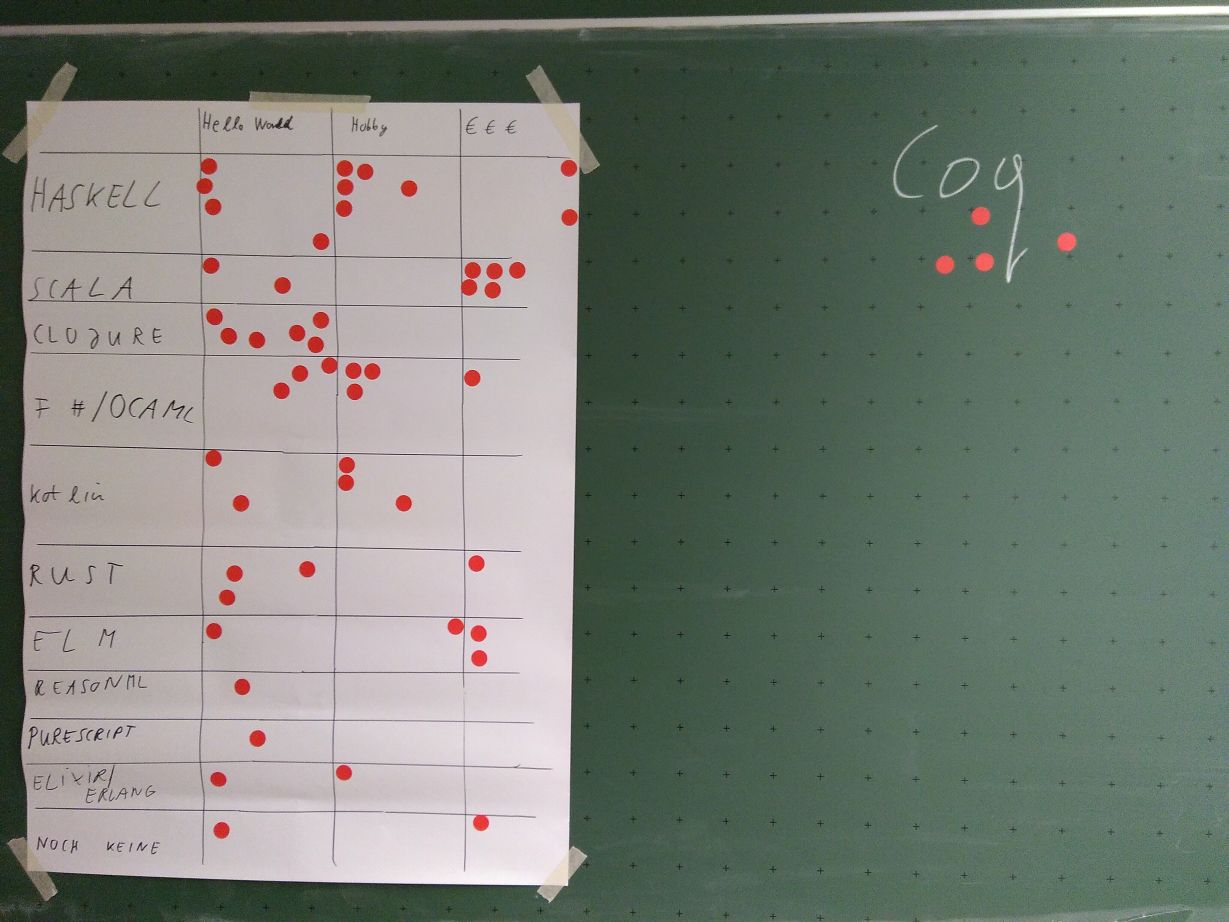 Hello World Hobby € € €
HASKELL
SCALA
CLOJURE
F #/OCAML
kotlin
RUST
ELM
REASONML
PURESCRIPT
ELIXIR/
ERLANG
NOCH KEINE
Coq